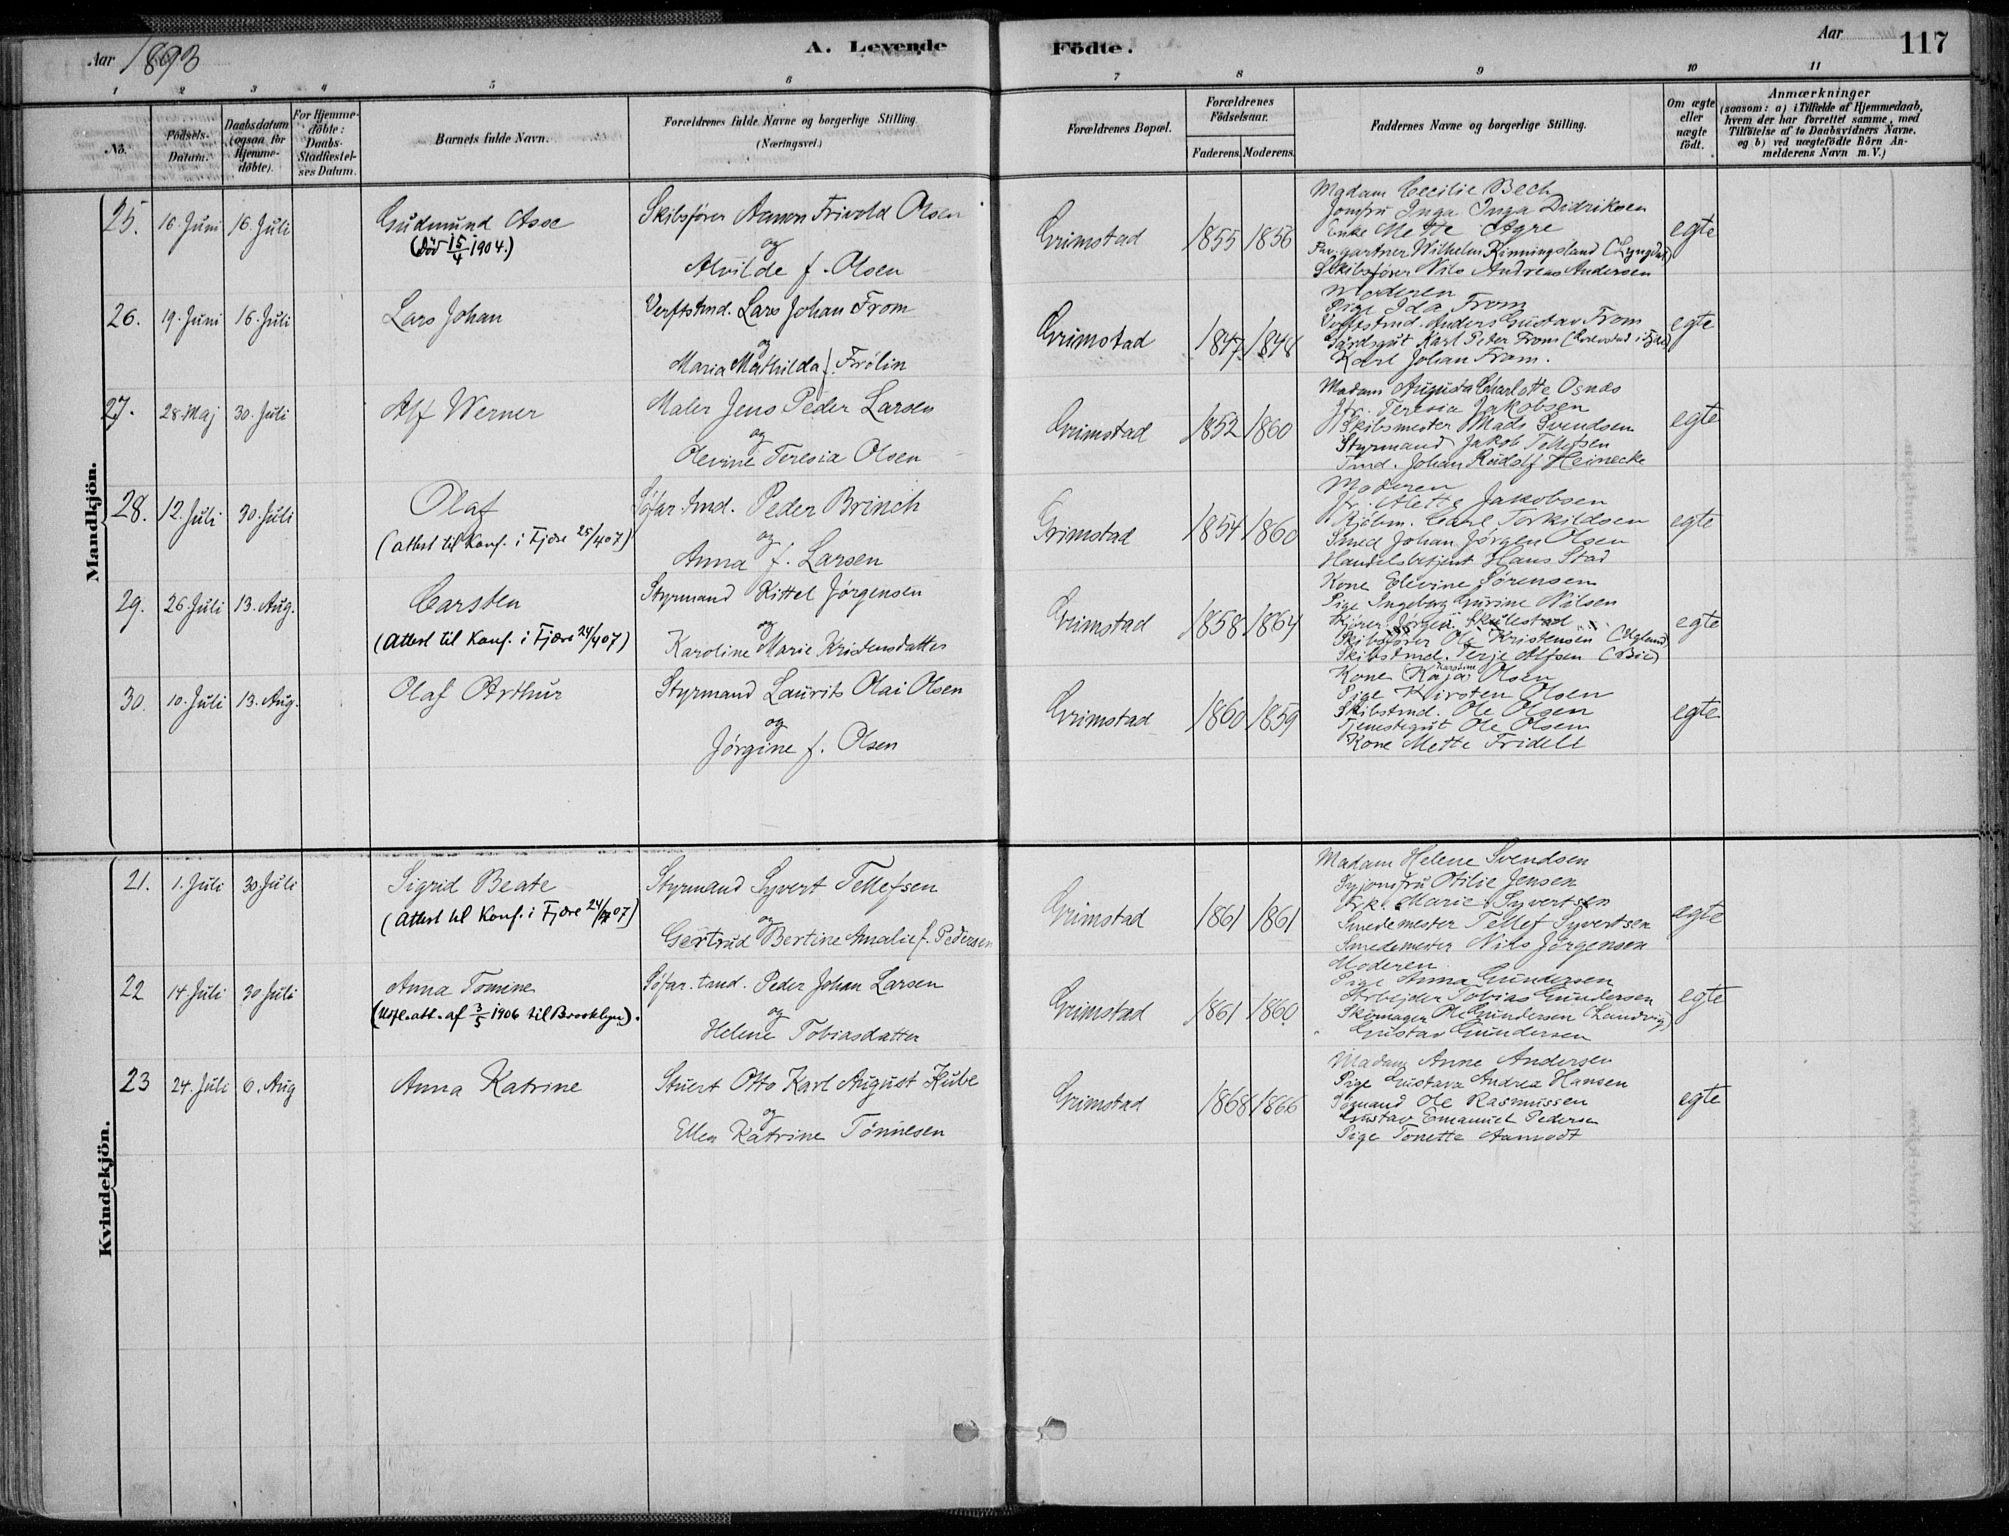 Aar 1893
A. Levende
Födte.
Aar
117
1 2 3 4 5 6 7 8 9 10 11
No.
Födsels-Datum.
Daabsdatum (ogsaa for Hjemme-döbte).
For Hjemme-döbte: Daabs-Stadfæstel-ses Datum.
Barnets fulde Navn.
Forældrenes fulde Navne og borgerlige Stilling (Næringsvei.)
Forældrenes Bopæl.
Forældrenes Födselsaar.
Faderens. Moderens.
Faddernes Navne og borgerlige Stilling.
Om ægte eller uægte födt.
Anmærkninger
(saasom: a) i Tilfælde af Hjemmedaab,
hvem der har forrettet samme, med
Tilföielse af to Daabsvidners Navne,
og b) ved uægtefödte Börn An-
melderens Navn m. V.)
Mandkjön.
25. 16 Juni 16. Juli
Gudmund Aase
(Död 15/4 1904.)
Skibsfører Aanon Frivold Olsen
og
Alvilde f. Olsen
Grimstad 1855 1856
Madam Cecilie Bech
Jomfru Inga Inga Didriksen
Enke Mette Agre
gartner Wilhelm Kinningsland (Lyngdal)
Skibsfører Nils Andreas Andersen
egte
26. 19. Juni 16. Juli
Lars Johan
Verftstmd. Lars Johan From
og
Maria Mathilda f. Frölin
Grimstad 1847 1848
Moderen
Pige Ida From
Verftstmd. Anders Gustav From
Gårdsgut Karl Peder From
Karl Johan From.
egte
27. 28 Maj 30. Juli
Alf Werner
Maler Jens Peder Larsen
og
Olevine Teresia Olsen
Grimstad 1852 1860
Madam Augusta Charlotte Osnæs
Jfr. Teresia Jakobsen
Skibsmester Mads Svendsen
Styrmand Jakob Tellefsen
Tmd. Johan Rudolf Heinecke
egte
28. 12. Juli 30. Juli
Olaf
(Attest til Konf. i Fjære 25/4 07)
Söfar. tmd. Peder Brinch
og
Anna f. Larsen
Grimstad 1854 1860
Moderen
Jfr. Alette Jakobsen
Kjöbm. Carl Torkildsen
Smed Johan Jörgen Olsen
Handelsbetjent Hans Stad
egte
29. 26 Juli 13. Aug.
Carsten
(Attest til Konf. i Fjære 24/4 07)
Styrmand Kittel Jørgensen
og
Karoline Marie Kristensdatter
Grimstad 1858 1864
Kone Elevine Sørensen
Pige Ingeborg Gurine Nilsen
Jørgen
Skibsfører Ole Kristensen
Skibstmd. Terje Alfsen (Bie)
egte
30. 10. Juli 13. Aug.
Olaf Arthur
Styrmand Laurits Olai Olsen
og
Jørgine f. Olsen
Grimstad 1860 1859
Kone Kaja Karoline Olsen
Pige Kirsten Olsen
Skibstmd. Ole Olsen
Tjenestegut Ole Olsen
Kone Mette Fridell
egte
Kvindekjön.
21. 1. Juli 30 Juli
Sigrid Beate
(Attest til Konf. i Fjære 24/4 07)
Styrmand Syvert Tellefsen
og
Gertrud Bertine Amalie f. Pedersen
Grimstad 1861 1861
Madam Helene Svendsen
Syjomfru Otilie Jensen
Frk. Marie Syvertsen
Smedemester Tellef Syvertsen
Smedemester Nils Jørgensen
egte
22 14 Juli 30 Juli
Anna Tomine
(Udfl.att. af 3/5 1906 til Brooklyn).
Söfar. tmd. Peder Johan Larsen
og
Helene Tobiasdatter
Grimstad 1861 1860
Moderen
Pige Anna Gundersen
Arbejder Tobias Gundersen
Skomager Ole Gundersen (Landvig)
Gustav Gundersen
egte
23 24. Juli 6. Aug
Anna Katrine
Stuert Otto Karl August Kube
og
Ellen Katrine Tönnesen
Grimstad 1868 1866
Madam Anne Andersen
Pige Gustava Andrea Hansen
Sømand Ole Rasmussen
Gustav Emanuel Pedersen
Pige Tonette Aamodt
egte